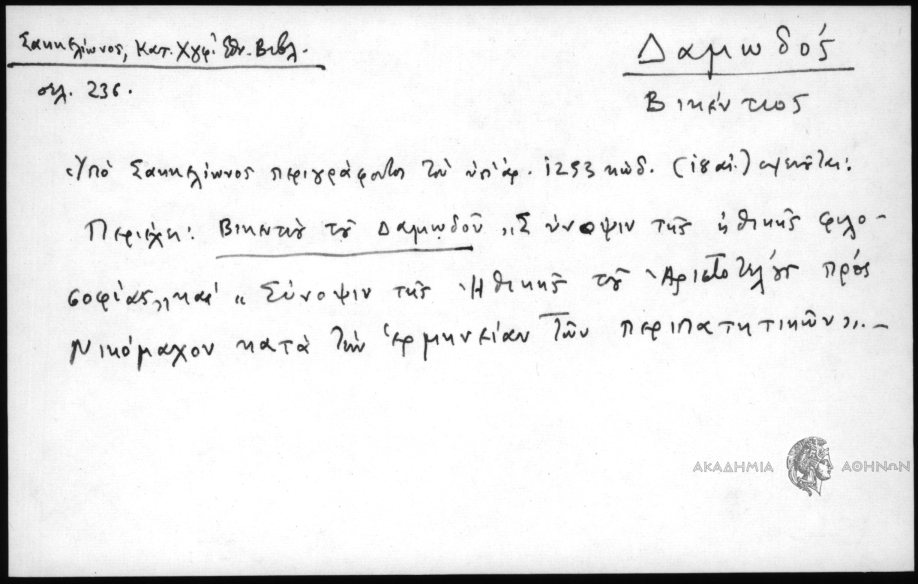 Σακκελίωνος, Κατ. Χγφ. Ἐθν. Βιβλ.
σελ. 236.
Δαμωδός
Βικέντιος
Ὑπὸ Σακκελίωνος περιγράφοντος τὸν ὑπ' ἀρ. 1253 κώδ. (ιθ' αἰ.)
Περιέχει: Βικεντίου τοῦ Δαμωδοῦ „Σύνοψιν τῆς ἠθικῆς φιλο-
σοφίας„ καὶ „Σύνοψιν τῆς Ἠθικῆς τοῦ Ἀριστοτέλους πρὸς
Νικόμαχον κατὰ τὴν ἑρμηνείαν τῶν περιπατητικῶν„.–
ΑΚΑΔΗΜΙΑ ΑΘΗΝΩΝ